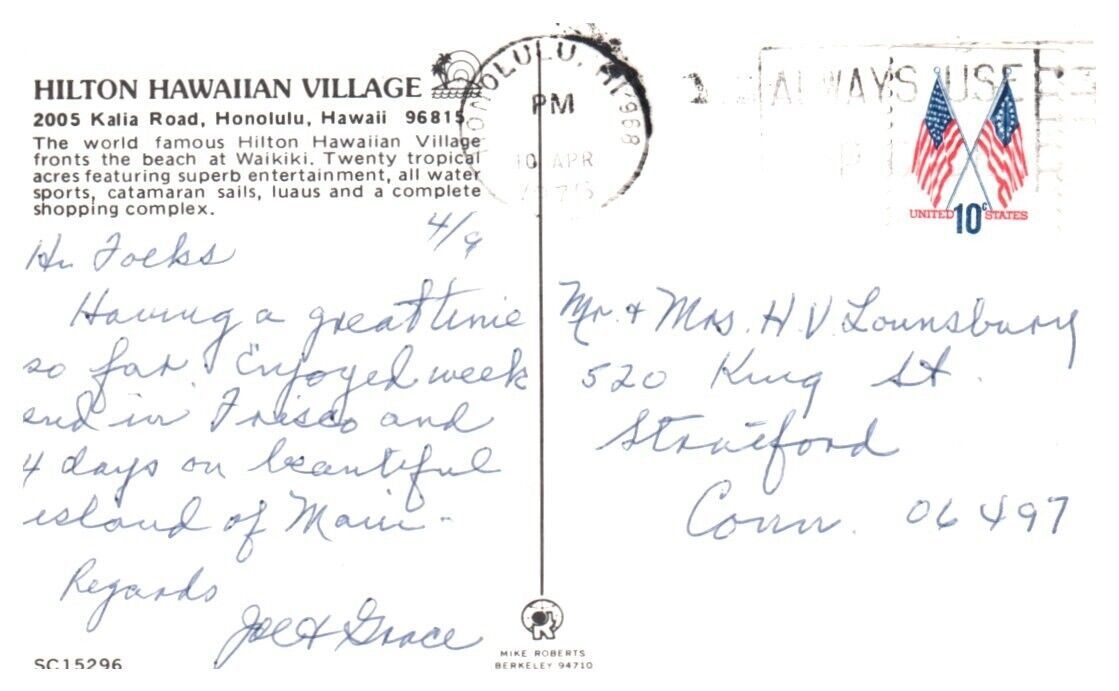 HILTON HAWAIIAN VILLAGE
2005 Kalia Road, Honolulu, Hawaii 96815
The world famous Hilton Hawaiian Village
fronts the beach at Waikiki. Twenty tropical
acres featuring superb entertainment, all water
sports, catamaran sails, luaus and a complete
shopping complex.
4/9
Hi Folks
Having a great time
so far. Enjoyed week
end in Frisco and
4 days on beautiful
island of Maui -
Regards
Joe & Grace
SC15296
HONOLULU, HI 968
PM
10 APR
ALWAYS USE
UNITED 10c STATES
Mr. & Mrs. H V Lounsbury
520 King St.
Stratford
Conn. 06497
MIKE ROBERTS
BERKELEY 94710